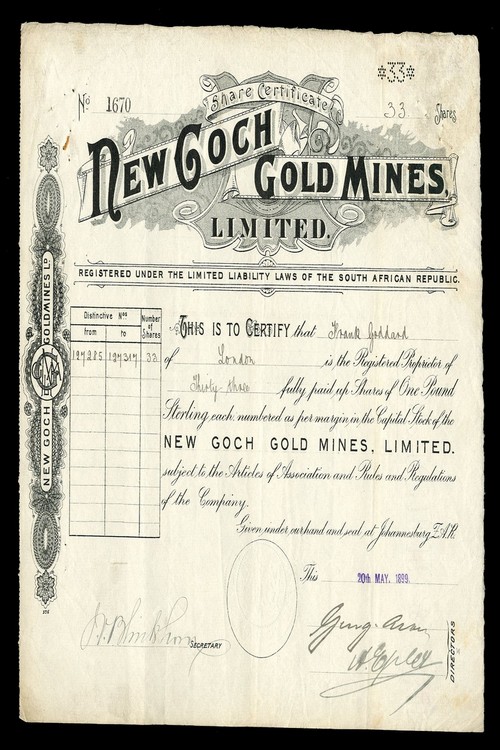 *33*
Share Certificate
No 1670
33 Shares
NEW GOCH
GOLD MINES,
LIMITED.
REGISTERED UNDER THE LIMITED LIABILITY LAWS OF THE SOUTH AFRICAN REPUBLIC.
Distinctive Nos
Number of Shares
from to
127285 127317 33
THIS IS TO CERTIFY that Frank Goddard
of London is the Registered Proprietor of
Thirty three fully paid up Shares of One Pound
Sterling each, numbered as per margin, in the Capital Stock of the
NEW GOCH GOLD MINES, LIMITED.
subject to the Articles of Association and Rules and Regulations
of the Company.
Given under our hand and seal, at Johannesburg Z.A.R.
This 20th MAY. 1899
SECRETARY
DIRECTORS
NEW GOCH GOLD MINES LD